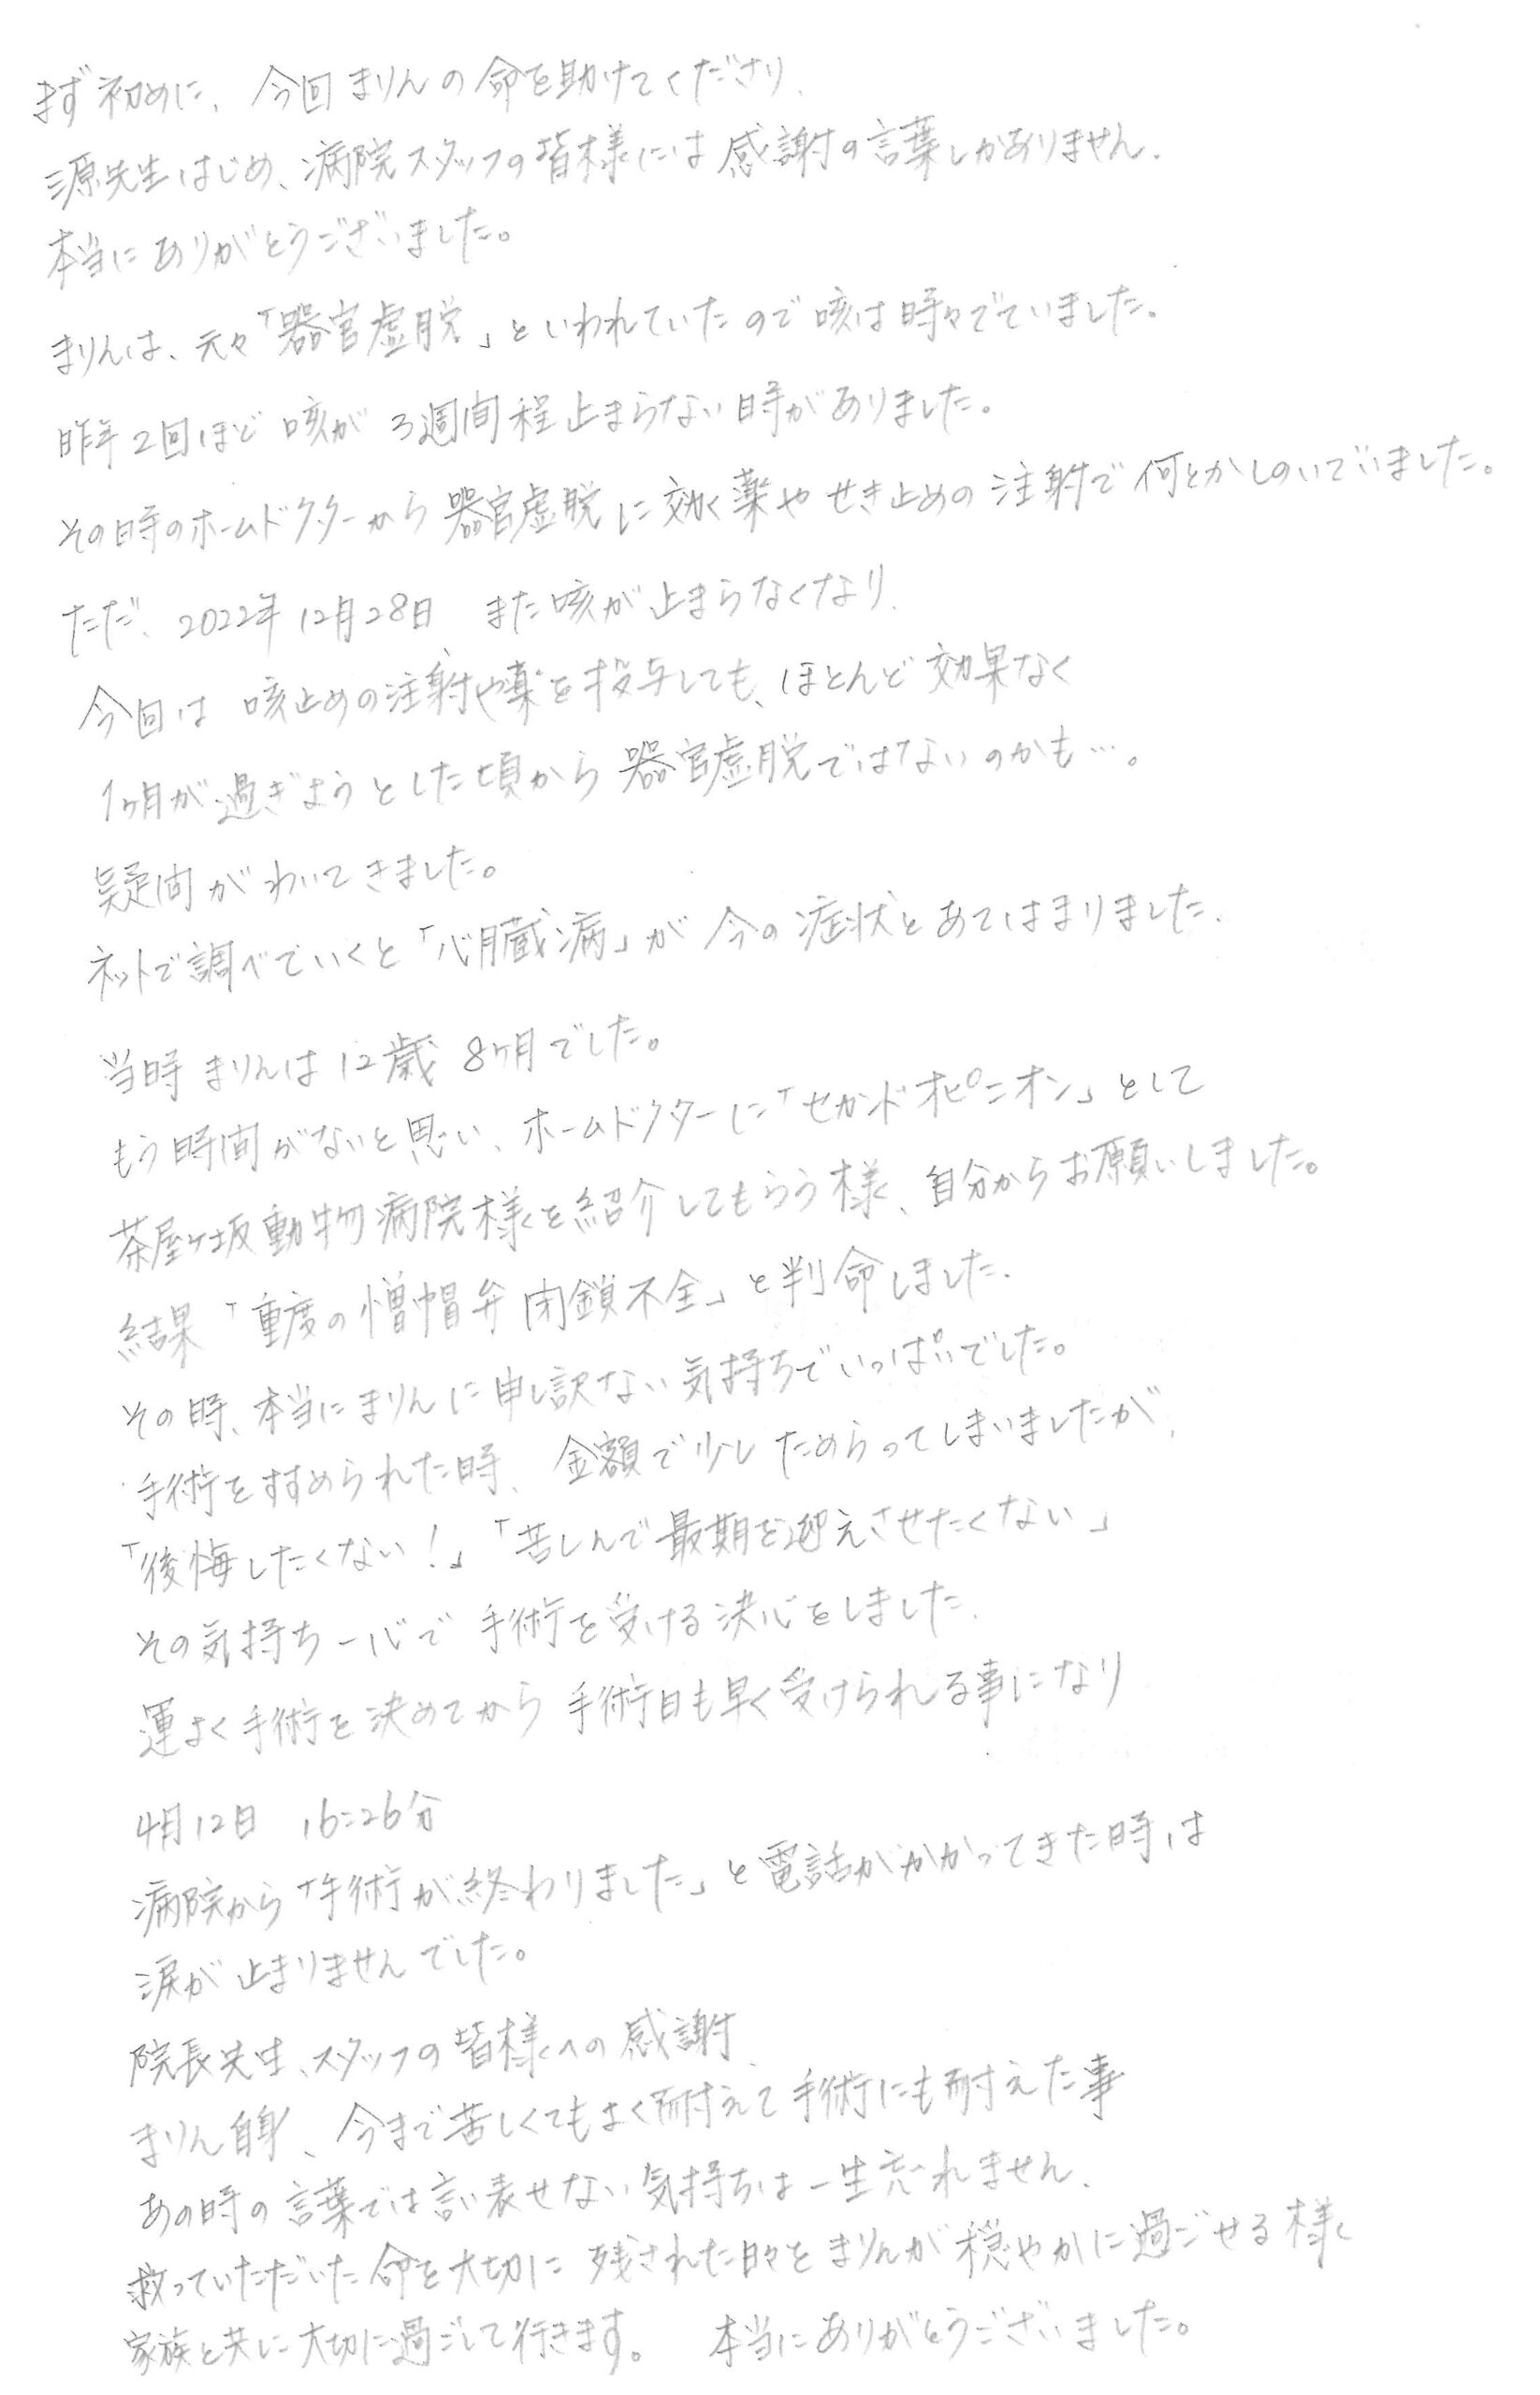 まず初めに、今回まりんの命を助けてくださり、
三原先生はじめ、病院スタッフの皆様には感謝の言葉しかありません.
本当にありがとうございました。
まりんは、元々「器官虚脱」といわれていたので咳は時々でていました。
昨年2回ほど咳が3週間程止まらない時がありました。
その時のホームドクターから器官虚脱に効く薬やせき止めの注射で何とかしのいでいました。
ただ、2022年12月28日 また咳が止まらなくなり、
今回は咳止めの注射や薬を投与しても、ほとんど効果なく
1ヶ月が過ぎようとした頃から器官虚脱ではないのかも…。
疑問がわいてきました。
ネットで調べていくと「心臓病」が今の症状とあてはまりました.
当時まりんは12歳8ヶ月でした。
もう時間がないと思い、ホームドクターに「セカンドオピニオン」として
茶屋ヶ坂動物病院様を紹介してもらう様、自分からお願いしました。
結果「重度の憎帽弁閉鎖不全」と判命しました.
その時、本当にまりんに申し訳ない気持ちでいっぱいでした。
手術をすすめられた時、金額で少しためらってしまいましたが、
「後悔したくない!」「苦しんで最期を迎えさせたくない」
その気持ち一心で手術を受ける決心をしました.
運よく手術を決めてから手術日も早く受けられる事になり
4月12日 16:26分
病院から「手術が終わりました」と電話がかかってきた時は
涙が止まりませんでした。
院長先生、スタッフの皆様への感謝、
まりん自身、今まで苦しくてもよく耐えて手術にも耐えた事
あの時の言葉では言い表せない気持ちは一生忘れません.
救っていただいた命を大切に残された日々をまりんが穏やかに過ごせる様
家族と共に大切に過ごして行きます。 本当にありがとうございました。